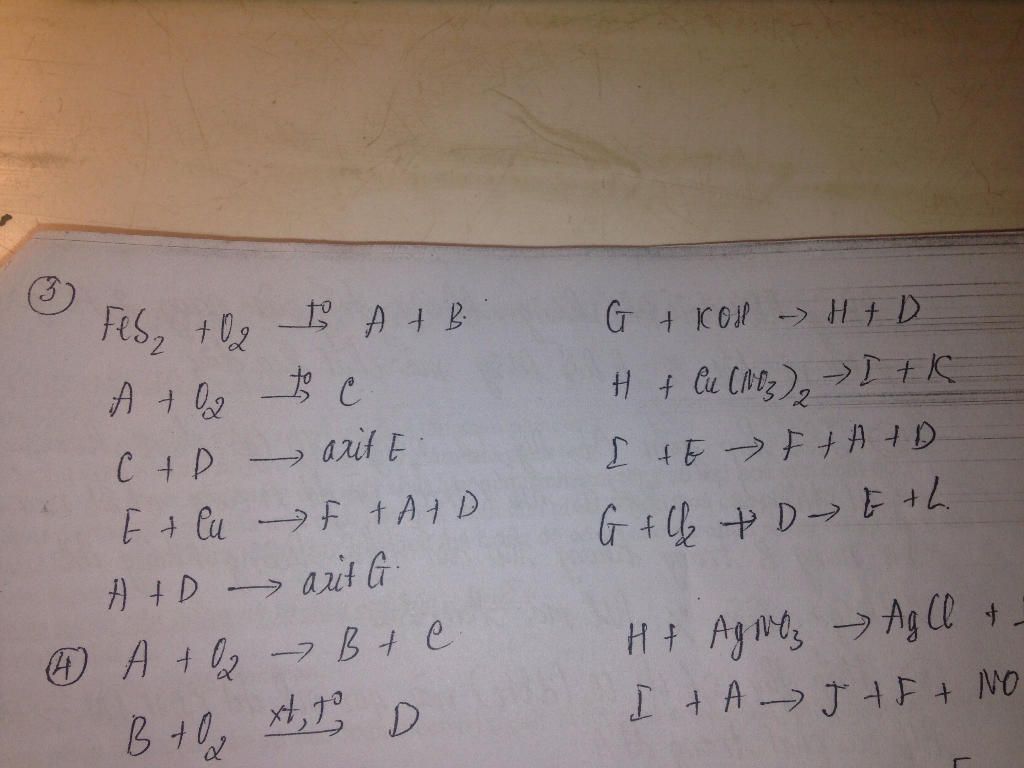 ③
FeS₂ + O₂ —t°→ A + B.
A + O₂ —t°→ C
C + D → axit E.
E + Cu → F + A + D
A + D → axit G.
G + KOH → H + D
H + Cu(NO₃)₂ → I + K
I + E → F + A + D
G + Cl₂ + D → E + L.
④
A + O₂ → B + C
B + O₂ —xt, t°→ D
H + AgNO₃ → AgCl +
I + A → J + F + NO